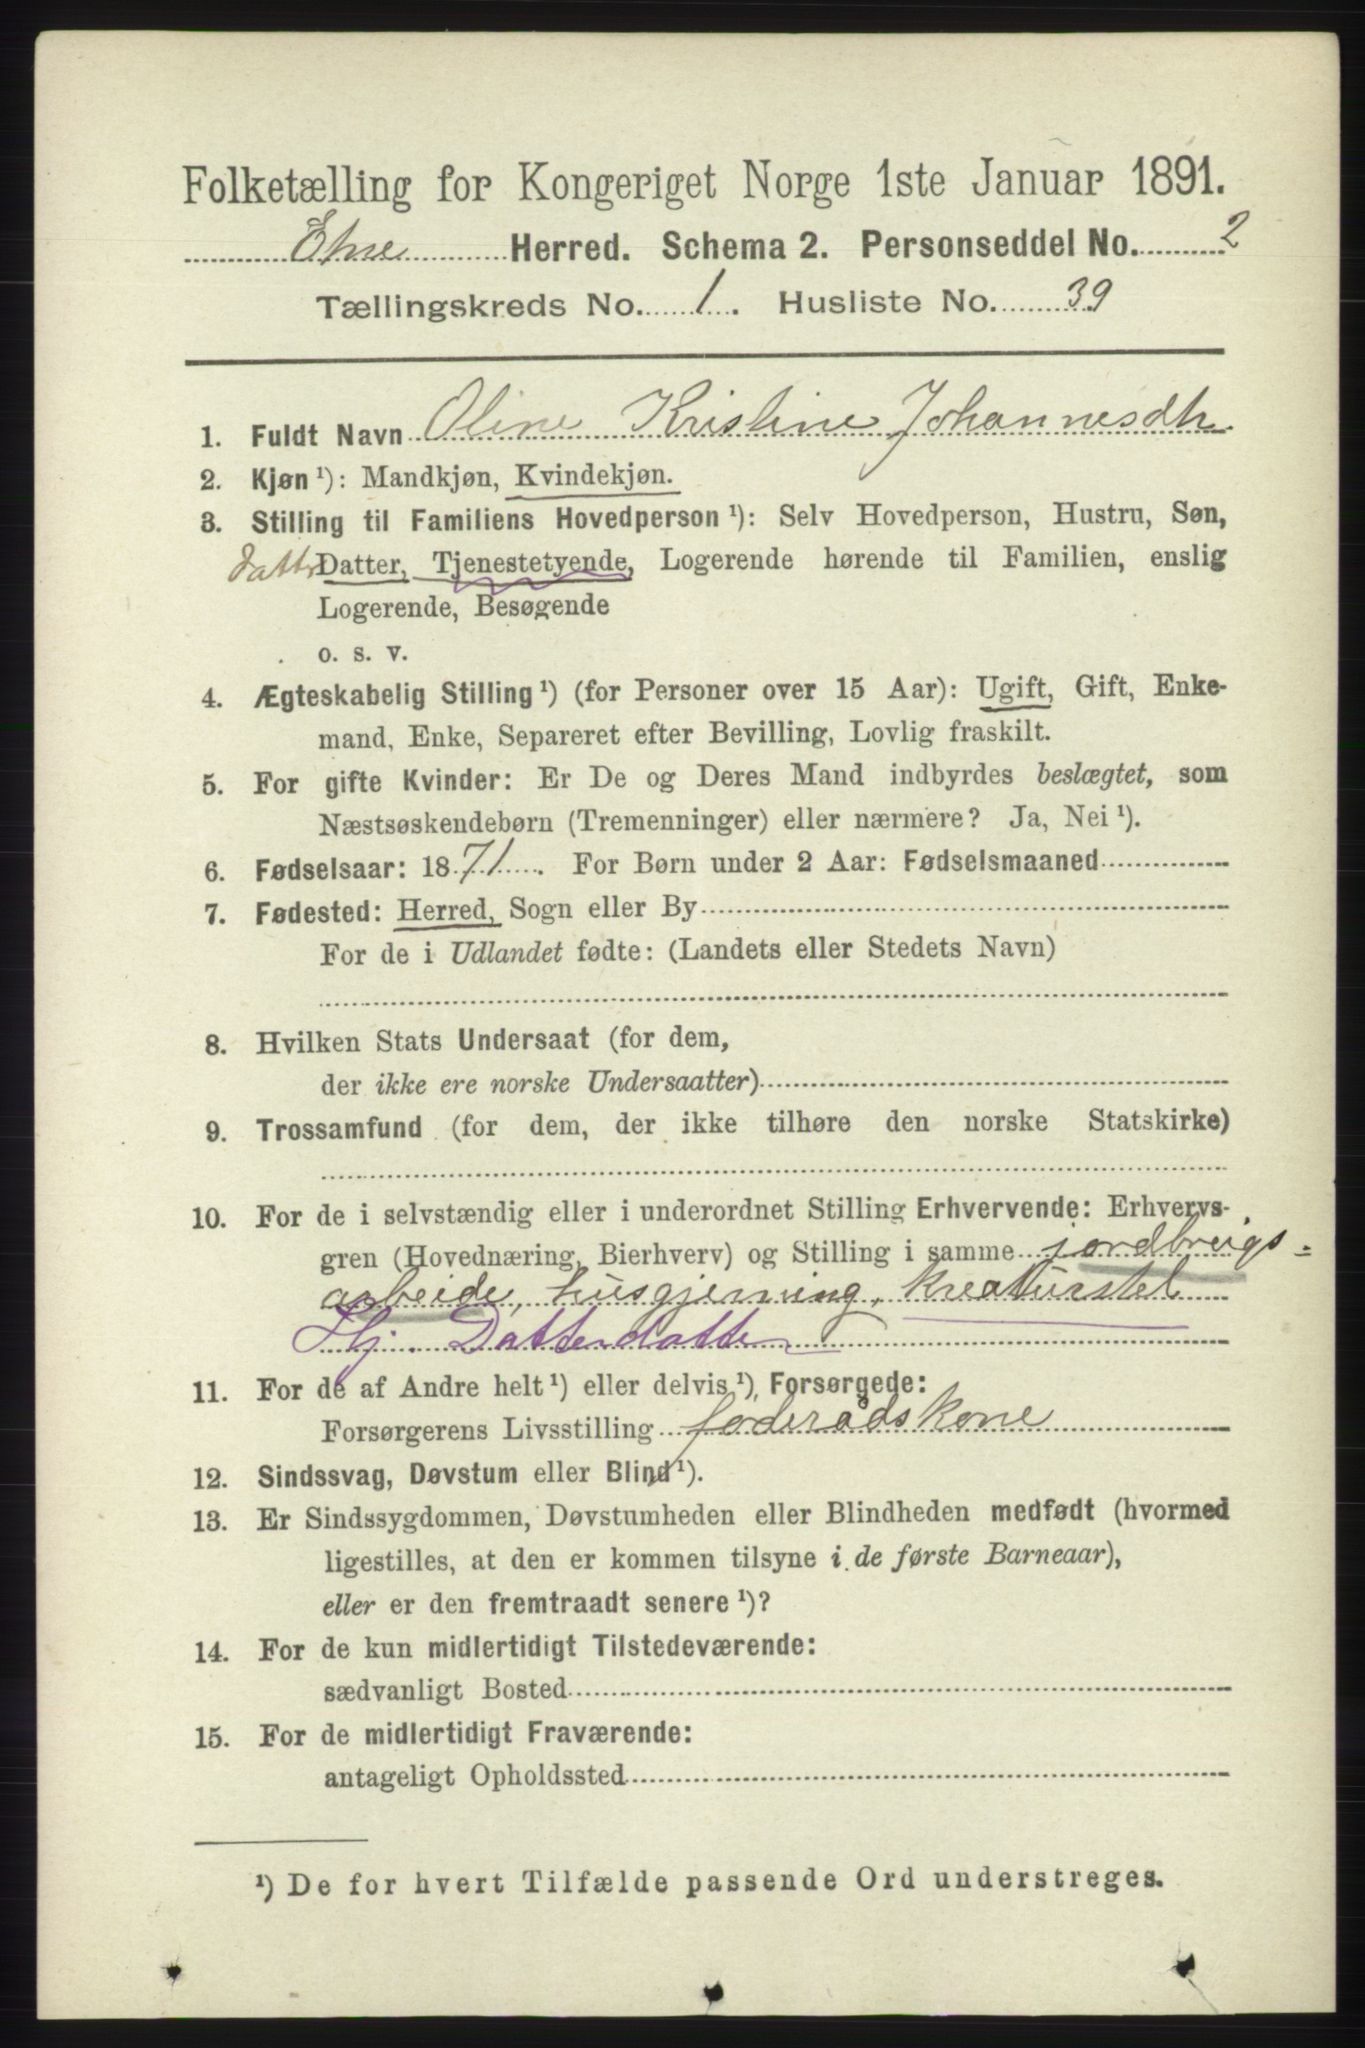 Folketælling for Kongeriget Norge 1ste Januar 1891.
Etne Herred. Schema 2. Personseddel No. 2
Tællingskreds No. 1. Husliste No. 39
1. Fuldt Navn Oline Kristine Johannesdtr.
2. Kjøn ¹): Mandkjøn, Kvindekjøn.
3. Stilling til Familiens Hovedperson ¹): Selv Hovedperson, Hustru, Søn,
datter Datter, Tjenestetyende, Logerende hørende til Familien, enslig
Logerende, Besøgende
o. s. v.
4. Ægteskabelig Stilling ¹) (for Personer over 15 Aar): Ugift, Gift, Enke-
mand, Enke, Separeret efter Bevilling, Lovlig fraskilt.
5. For gifte Kvinder: Er De og Deres Mand indbyrdes beslægtet, som
Næstsøskendebørn (Tremenninger) eller nærmere? Ja, Nei ¹).
6. Fødselsaar: 1871. For Børn under 2 Aar: Fødselsmaaned
7. Fødested: Herred, Sogn eller By
For de i Udlandet fødte: (Landets eller Stedets Navn)
8. Hvilken Stats Undersaat (for dem,
der ikke ere norske Undersaatter)
9. Trossamfund (for dem, der ikke tilhøre den norske Statskirke)
10. For de i selvstændig eller i underordnet Stilling Erhvervende: Erhvervs-
gren (Hovednæring, Bierhverv) og Stilling i samme jordbrugs=
arbeide, husgjerning, kreaturstel
Hj. Datterdatter
11. For de af Andre helt ¹) eller delvis ¹), Forsørgede:
Forsørgerens Livsstilling føderådskone
12. Sindssvag, Døvstum eller Blind ¹).
13. Er Sindssygdommen, Døvstumheden eller Blindheden medfødt (hvormed
ligestilles, at den er kommen tilsyne i de første Barneaar),
eller er den fremtraadt senere ¹)?
14. For de kun midlertidigt Tilstedeværende:
sædvanligt Bosted
15. For de midlertidigt Fraværende:
antageligt Opholdssted
¹) De for hvert Tilfælde passende Ord understreges.